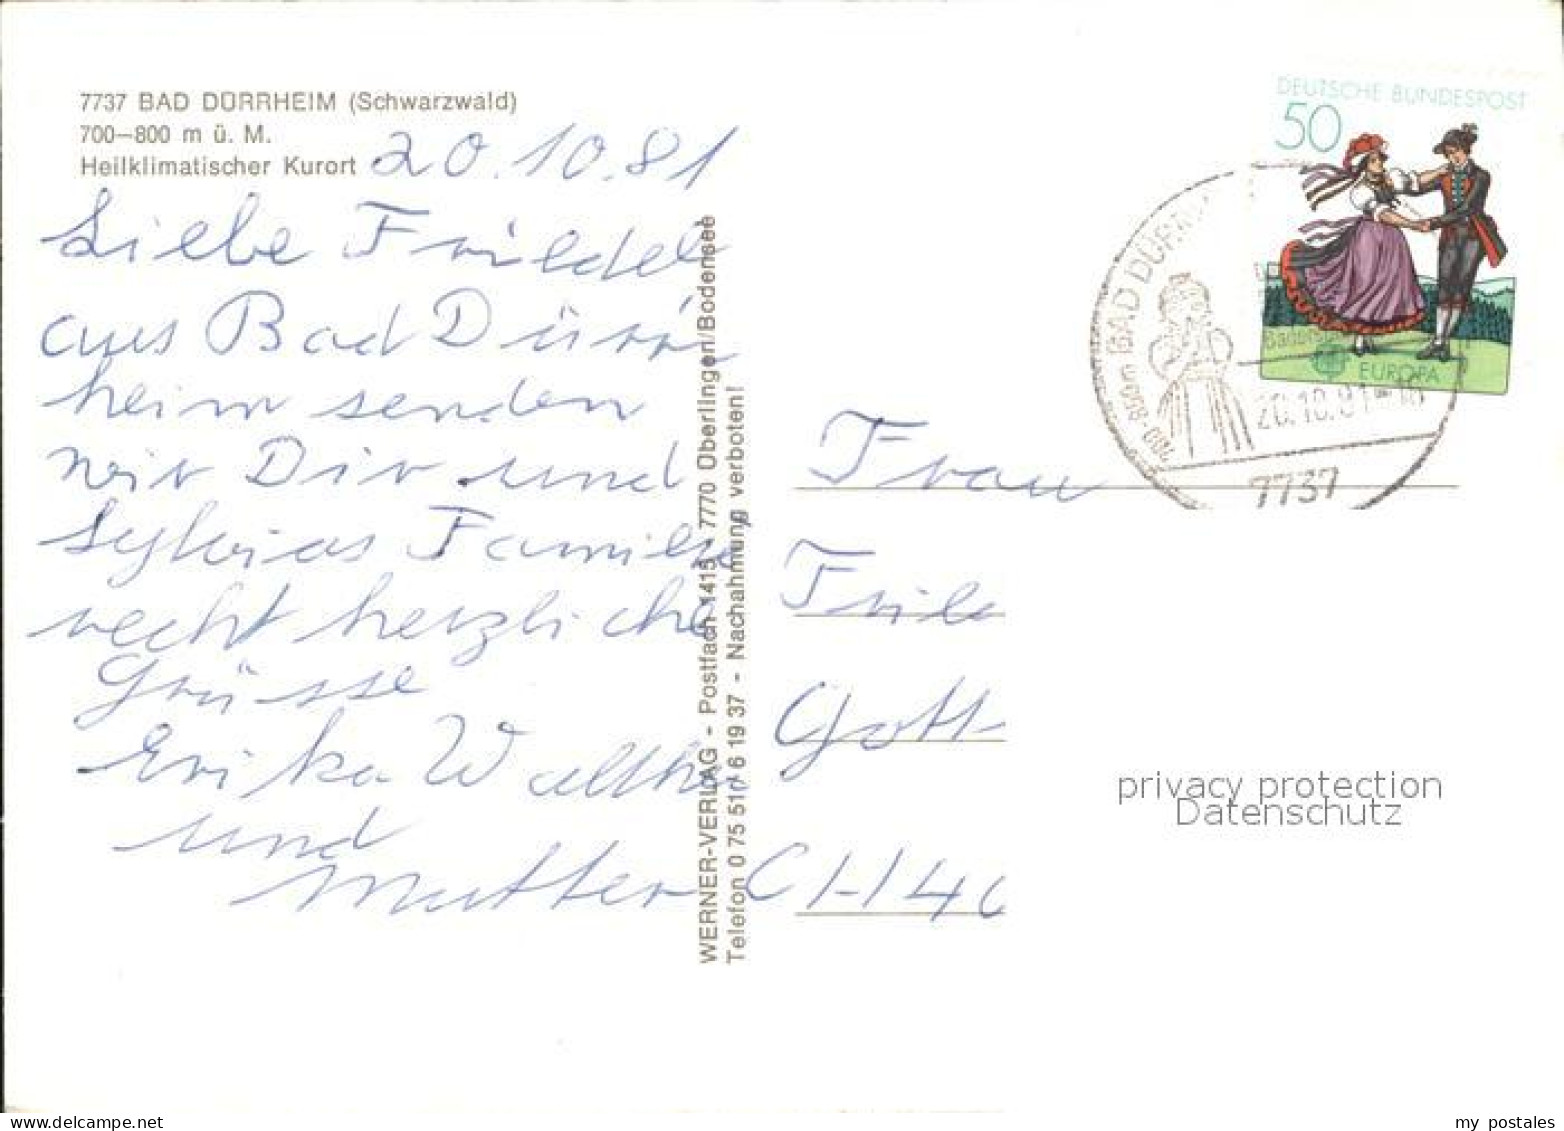 7737 BAD DÜRRHEIM (Schwarzwald)
700–800 m ü. M.
Heilklimatischer Kurort 20.10.81
Liebe Friedel
aus Bad Dürr
heim senden
wir Dir und
Sylvias Familie
recht herzliche
Grüsse
Erika Walther
und
Mutter
WERNER-VERLAG - Postfach 1415 7770 Überlingen/Bodensee
Telefon 0 75 51 / 6 19 37 - Nachahmung verboten!
DEUTSCHE BUNDESPOST
50
EUROPA
BAD DÜRRH
700-800m
20.10.81-18
7737
Frau
Gott-
CH-14
privacy protection
Datenschutz
my postales